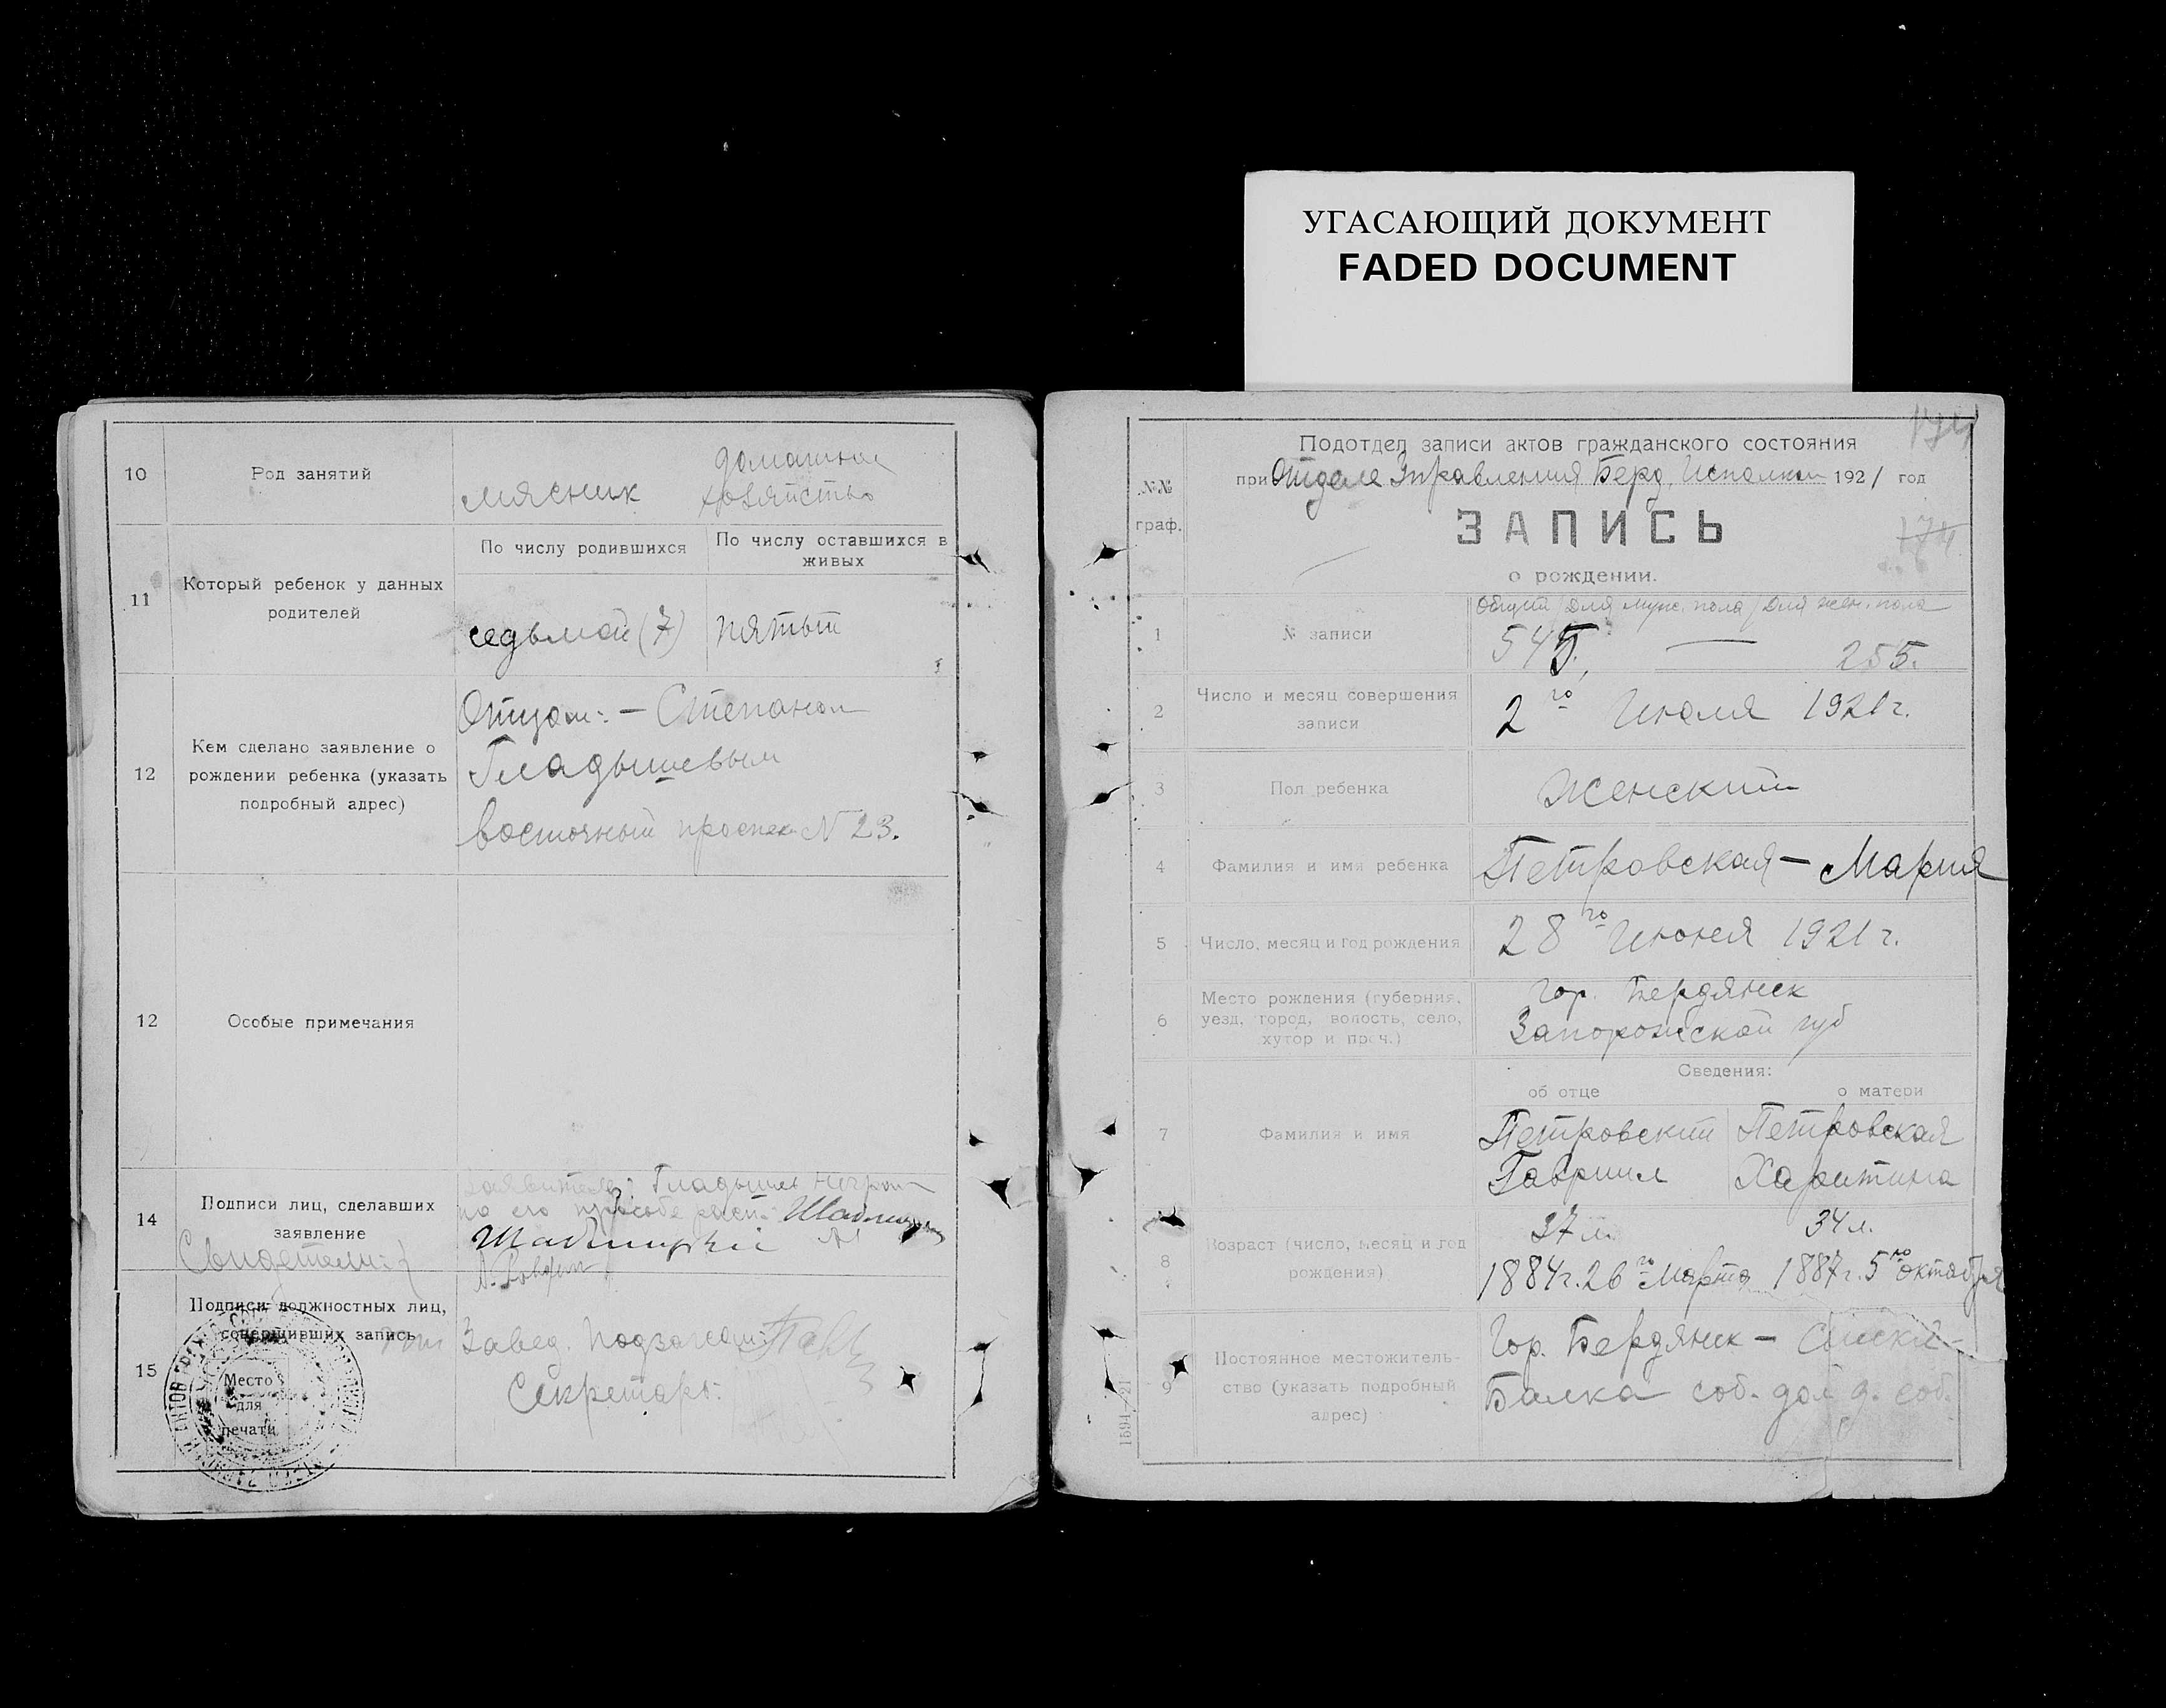 УГАСАЮЩИЙ ДОКУМЕНТ
FADED DOCUMENT
10
Род занятий
мясник
домашнее
хозяйство
11
Который ребенок у данных
родителей
По числу родившихся
По числу оставшихся в
живых
седьмой (7)
пятый
12
Кем сделано заявление о
рождении ребенка (указать
подробный адрес)
Отцом: — Степаном
Гладышевым
восточный проспек № 23.
12
Особые примечания
14
Подписи лиц, сделавших
заявление
Свидетели:
Гладышев
по его просьбе расп.
15
Подписи должностных лиц,
совершивших запись
Место
для
печати
Завед. Подзагсом:
Секретарь:
174
Подотдел записи актов гражданского состояния
при Отделе Управления Берд. Исполком 1921 год
№№
граф.
ЗАПИСЬ
174
о рождении.
1
№ записи
Общий / Для муж. пола / Для жен. пола
545. — 255.
2
Число и месяц совершения
записи
2го Июля 1921 г.
3
Пол ребенка
Женский
4
Фамилия и имя ребенка
Петровская — Мария
5
Число, месяц и год рождения
28го Июня 1921 г.
6
Место рождения (губерния,
уезд, город, волость, село,
хутор и проч.)
гор. Бердянск
Запорожской губ
Сведения:
об отце
о матери
7
Фамилия и имя
Петровский
Гавриил
Петровская
Харитина
8
Возраст (число, месяц и год
рождения)
37 л.
34 л.
1884 г. 26го Марта
1887 г. 5го октября
9
Постоянное местожитель-
ство (указать подробный
адрес)
Гор. Бердянск —
Балка соб. дом д. соб.
1594—21